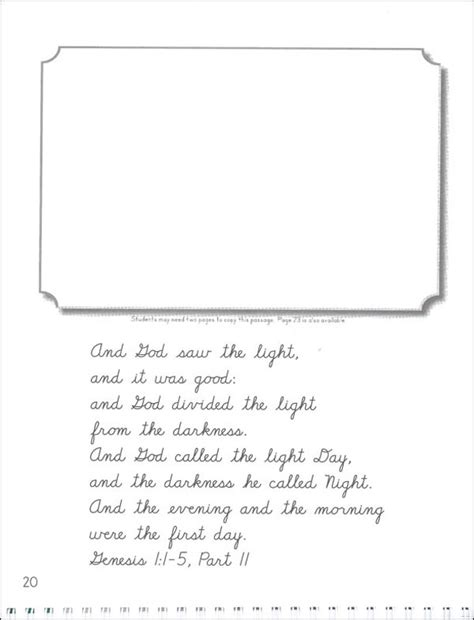 Students may need two pages to copy this passage. Page 23 is also available
And God saw the light,
and it was good:
and God divided the light
from the darkness.
And God called the light Day,
and the darkness he called Night.
And the evening and the morning
were the first day.
Genesis 1:1-5, Part 11
20